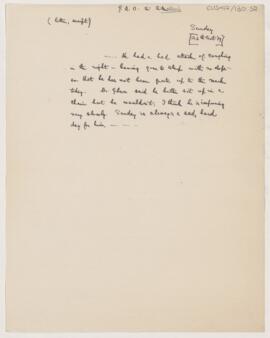 CUS-17/130.52
(letter, script)
Sunday
--- He had a bad attack of coughing
in the night - having gone to sleep with no
on that he has not been quite up to the mark
today. Dr. said he better sit up in a
chair but he wouldn't; I think he is improving
very slowly. Sunday is always a sad, hard
day for him - - -